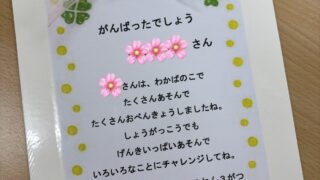 がんばったでしょう
さん
さんは、わかばのこで
たくさんあそんで
たくさんおべんきょうしましたね。
しょうがっこうでも
げんきいっぱいあそんで
いろいろなことにチャレンジしてね。